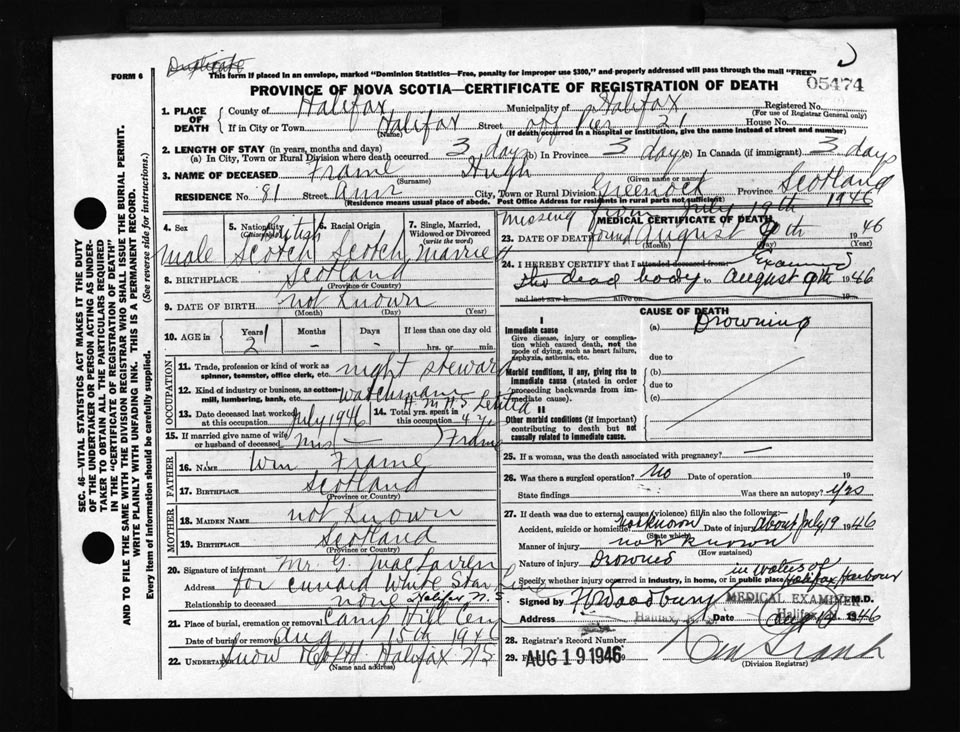 Duplicate
FORM 6
This form if placed in an envelope, marked "Dominion Statistics—Free, penalty for improper use $300," and properly addressed will pass through the mail "FREE"
PROVINCE OF NOVA SCOTIA—CERTIFICATE OF REGISTRATION OF DEATH
05474
1. PLACE OF DEATH
County of Halifax Municipality of Halifax Registered No.
(For use of Registrar General only)
If in City or Town Halifax Street off Pier 21 House No.
(Name) (If death occurred in a hospital or institution, give the name instead of street and number)
2. LENGTH OF STAY (in years, months and days)
(a) In City, Town or Rural Division where death occurred 3 days (b) In Province 3 days (c) In Canada (if immigrant) 3 days
3. NAME OF DECEASED Frame Hugh
(Surname) (Given name or names)
RESIDENCE No. 81 Street Ann City, Town or Rural Division Greenock Province Scotland
(Residence means usual place of abode. Post Office Address for residents in rural parts not sufficient)
4. Sex Male
5. Nationality (Citizenship) British Scotch
6. Racial Origin Scotch
7. Single, Married, Widowed or Divorced (write the word) Married
8. BIRTHPLACE Scotland
(Province or Country)
9. DATE OF BIRTH not known
(Month) (Day) (Year)
10. AGE in Years 21 Months - Days - If less than one day
hrs. or min.
OCCUPATION
11. Trade, profession or kind of work as spinner, teamster, office clerk, etc. night steward
12. Kind of industry or business, as cotton-mill, lumbering, bank, etc. watchman H.M.H.S. Letitia
13. Date deceased last worked at this occupation July 1946
14. Total yrs. spent in this occupation
15. If married give name of wife or husband of deceased Mrs — Frame
FATHER
16. NAME Wm Frame
17. BIRTHPLACE Scotland
(Province or Country)
MOTHER
18. MAIDEN NAME not known
19. BIRTHPLACE Scotland
(Province or Country)
20. Signature of informant Mr. G. MacLaren
Address for Cunard White Star Line
Relationship to deceased none Halifax N.S.
21. Place of burial, cremation or removal Camp Hill Cem
Date of burial or removal Aug 15th 1946
22. UNDERTAKER Snow & Co Ltd. Halifax NS
(Name and address)
Missing from July 19th 1946
MEDICAL CERTIFICATE OF DEATH
23. DATE OF DEATH found August 9th 1946
(Month) (Day) (Year)
24. I HEREBY CERTIFY that I attended deceased from Examined
the dead body to August 9th 1946
and last saw h alive on 19
CAUSE OF DEATH
I
Immediate cause
Give disease, injury or complication which caused death, not the mode of dying, such as heart failure, asphyxia, asthenia, etc.
(a) Drowning
due to
Morbid conditions, if any, giving rise to immediate cause (stated in order proceeding backwards from immediate cause).
(b)
due to
(c)
II
Other morbid conditions (if important) contributing to death but not causally related to immediate cause.
25. If a woman, was the death associated with pregnancy? —
26. Was there a surgical operation? No Date of operation 19
State findings Was there an autopsy? yes
27. If death was due to external causes (violence) fill in also the following:—
Accident, suicide or homicide? not known Date of injury about July 19 1946
(State which)
Manner of injury not known
(How sustained)
Nature of injury Drowned
in waters of
Specify whether injury occurred in industry, in home, or in public place Halifax Harbour
Signed by MEDICAL EXAMINER M.D.
Address Halifax, Date Aug 1946
28. Registrar's Record Number
29. AUG 19 1946
(Division Registrar)
SEC. 46—VITAL STATISTICS ACT MAKES IT THE DUTY
OF THE UNDERTAKER OR PERSON ACTING AS UNDER-
TAKER TO OBTAIN ALL THE PARTICULARS REQUIRED
IN THE "CERTIFICATE OF REGISTRATION OF DEATH"
AND TO FILE THE SAME WITH THE DIVISION REGISTRAR WHO SHALL ISSUE THE BURIAL PERMIT.
WRITE PLAINLY WITH UNFADING INK. THIS IS A PERMANENT RECORD.
Every item of information should be carefully supplied. (See reverse side for instructions.)